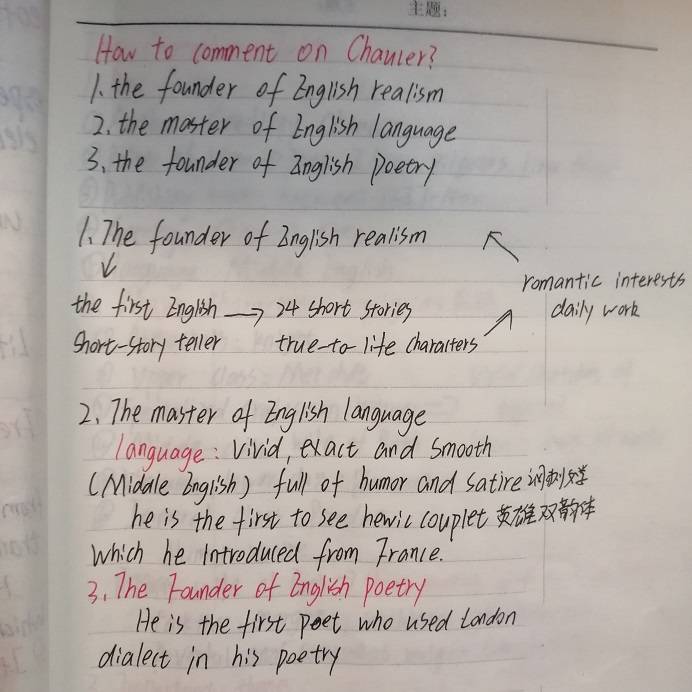 主题:
How to comment on Chaucer?
1. the founder of English realism
2. the master of English language
3. the founder of English poetry
1. The founder of English realism
romantic interests
daily work
the first English → 24 short stories
short-story teller true-to life characters
2. The master of English language
language: vivid, exact and smooth
(Middle English) full of humor and satire 讽刺
he is the first to see heroic couplet 英雄双韵体
which he introduced from France.
3. The Founder of English poetry
He is the first poet who used London
dialect in his poetry